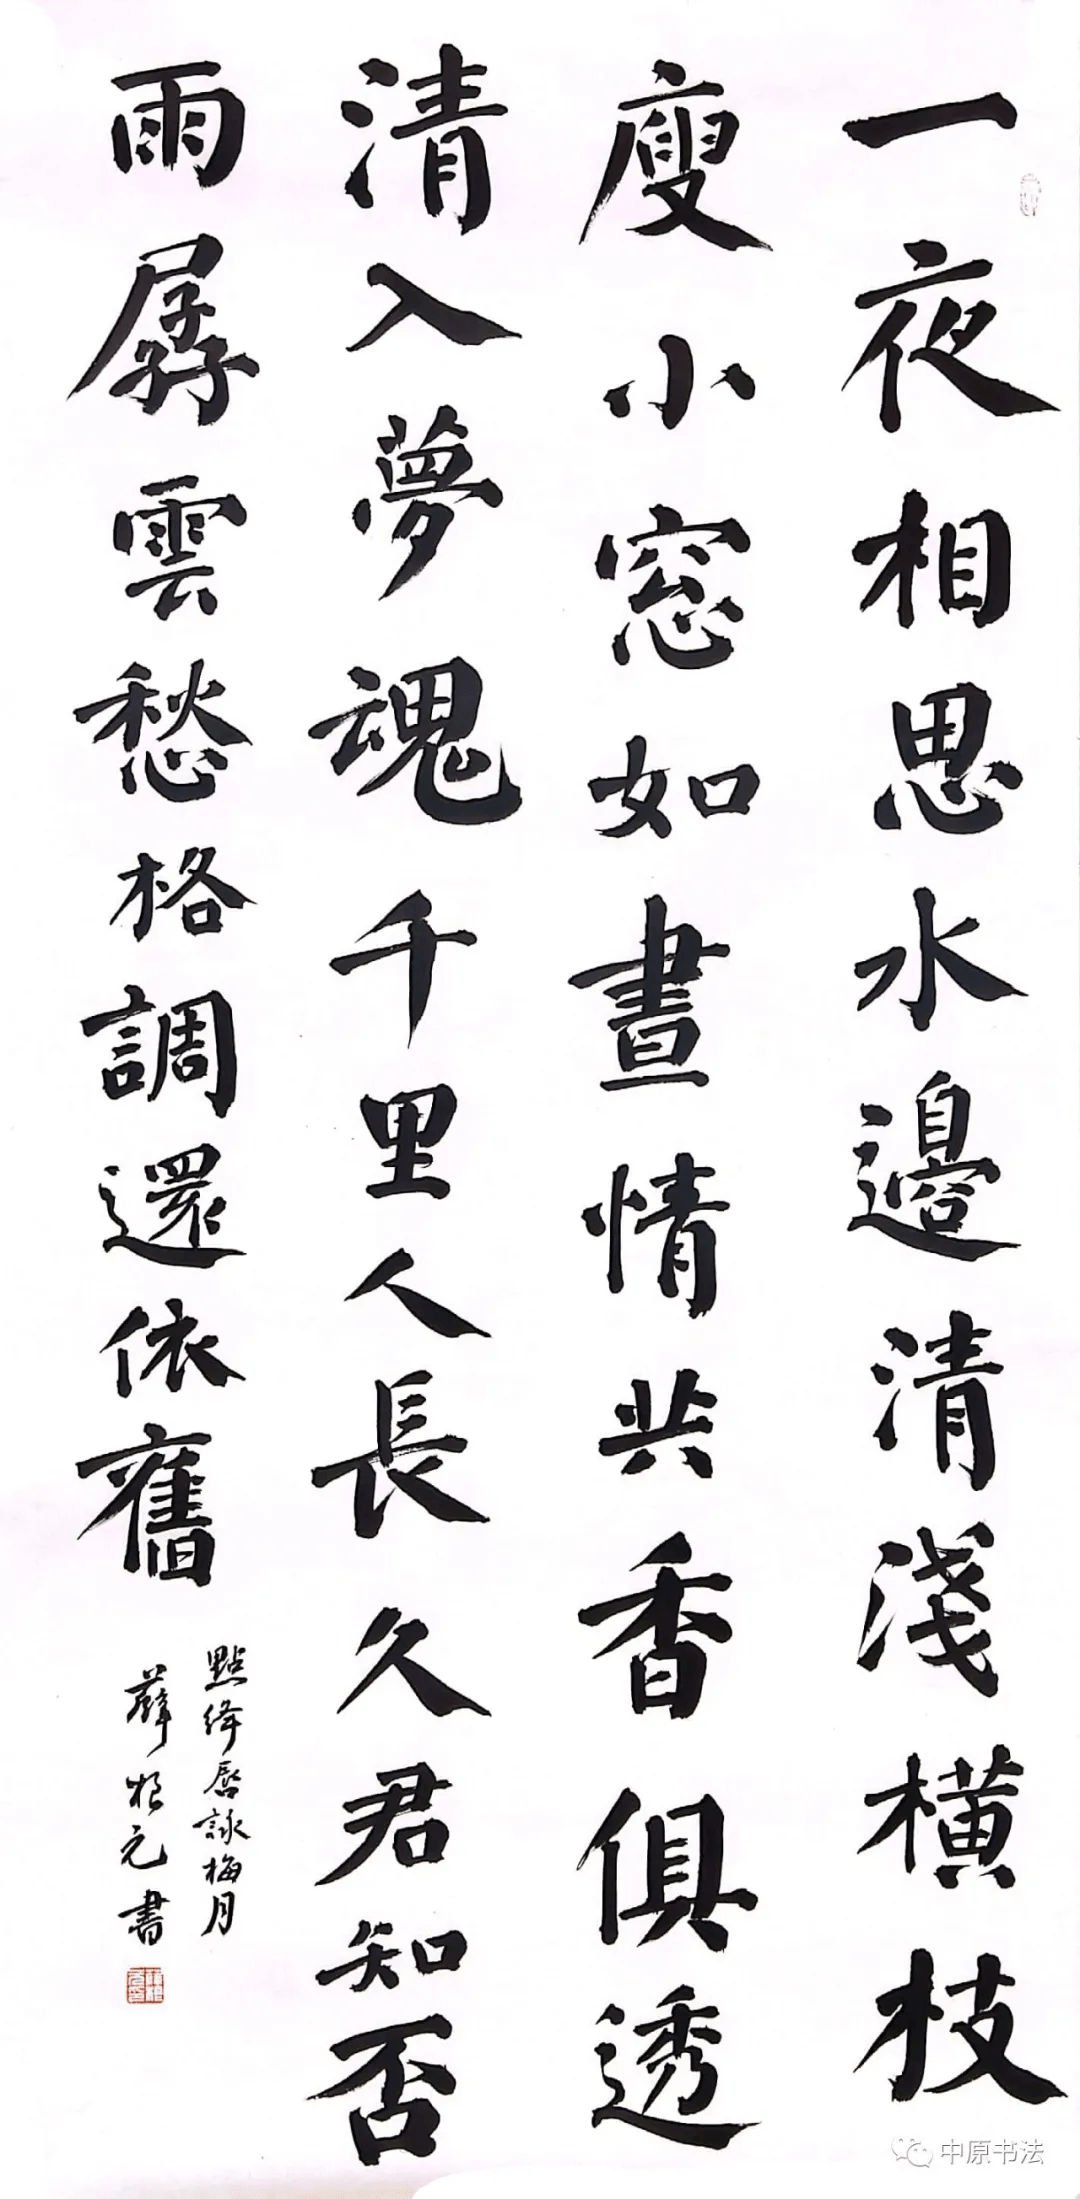 一夜相思水邊清淺橫枝
廋小窓如晝情共香俱透
清入夢魂千里人長久君知否
雨孱雲愁格調還依舊
點绛唇詠梅月
薛根元書
中原书法